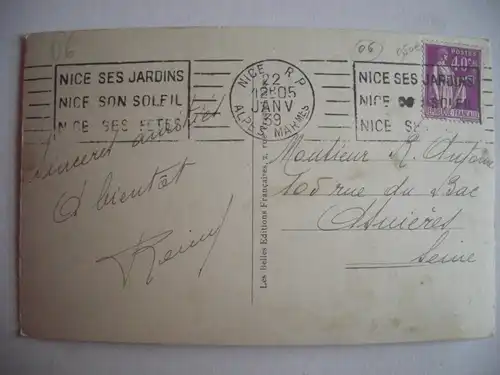 06
(06)
NICE SES JARDINS
NICE SON SOLEIL
NICE SES FETES
NICE R.P
22
12H05
JANV
39
ALPES MARMES
NICE SES JARDINS
NICE SOLEIL
NICE
POSTES
40c
Sincères amitiés
A bientôt
Les Belles Editions Françaises
Monsieur
165 rue du Bac
Asnières
Seine